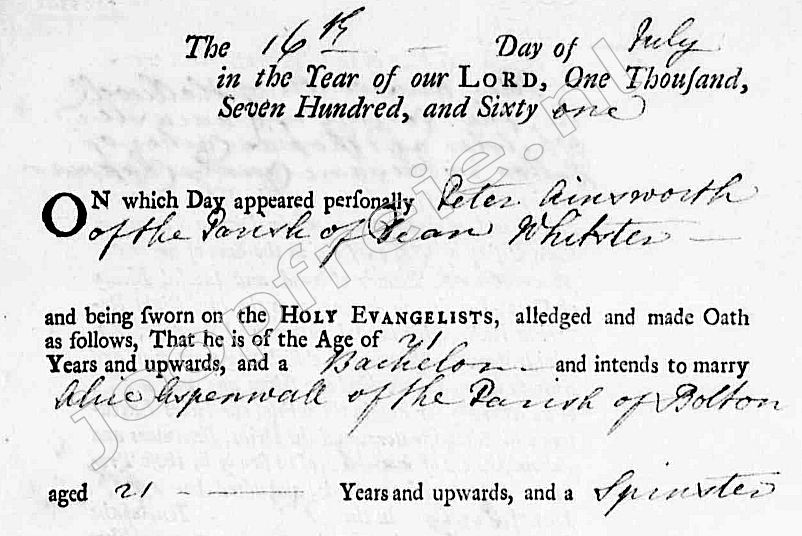 The 16th Day of July
in the Year of our LORD, One Thouſand,
Seven Hundred, and Sixty one
ON which Day appeared perſonally Peter Ainsworth
of the Parish of Dean Whitster
and being ſworn on the HOLY EVANGELISTS, alledged and made Oath
as follows, That he is of the Age of 21
Years and upwards, and a Bachelor and intends to marry
Alice Aspenwall of the Parish of Bolton
aged 21 Years and upwards, and a Spinster
joopfresie.nl